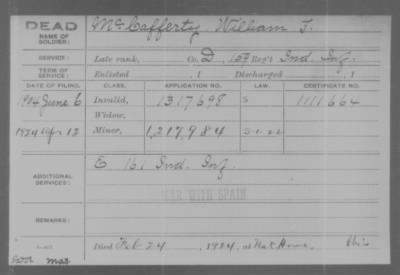 DEAD
NAME OF SOLDIER: McCafferty, William T.
SERVICE: Late rank, Co. D, 159 Reg't Ind. Inf.
TERM OF SERVICE: Enlisted , 1 Discharged , 1
DATE OF FILING. CLASS. APPLICATION NO. LAW. CERTIFICATE NO.
1904 June 6 Invalid, 1317698 S 1111664
Widow,
1924 Apr 12 Minor, 1,217,984
ADDITIONAL SERVICES: E 161 Ind. Inf.
WAR WITH SPAIN
REMARKS:
Died Feb 24, 1924, at Nat Home, Ohio